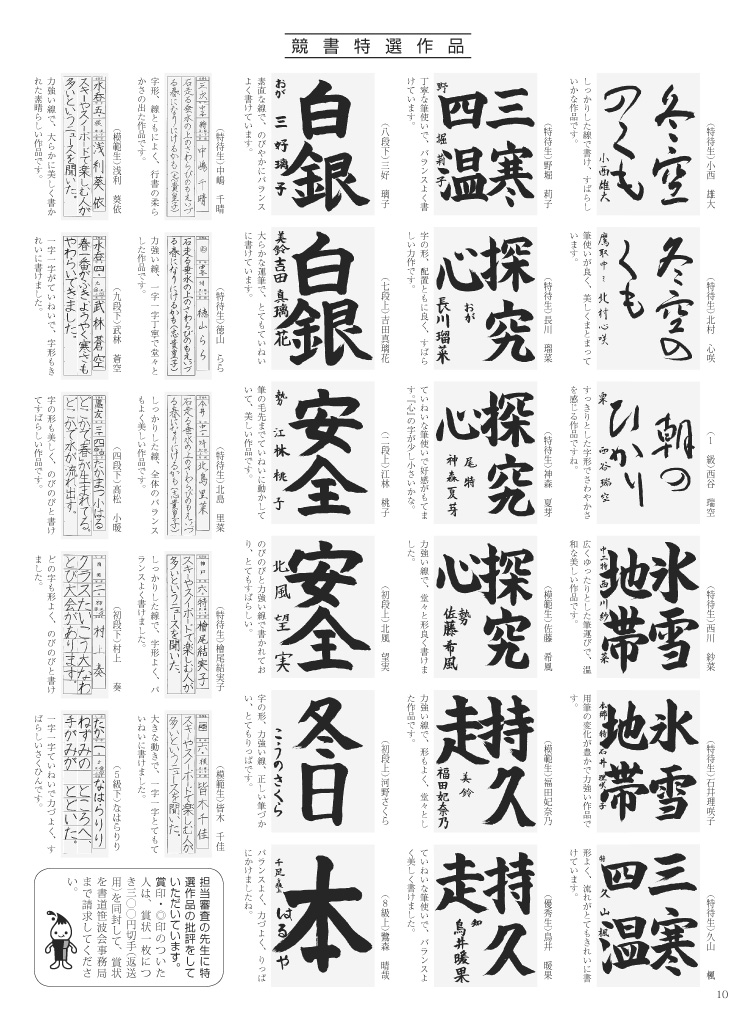 競書特選作品
(特待生)小西 雄大
冬空
のくも
小西雄大
しっかりした線で書け、すばらし
いかな作品です。
(特待生)北村 心咲
冬空の
くも
鷹取中三 北村心咲
筆使いが良く、美しくまとまって
います。
(1 級)西谷 瑞空
朝の
ひかり
東 西谷瑞空
すっきりとした字形でさわやかさ
を感じる作品ですね。
(特待生)西川 紗菜
氷雪
地帯
広くゆったりとした筆運びで、温
和な美しい作品です。
(特待生)石井理咲子
氷雪
地帯
用筆の変化が豊かで力強い作品で
す。
(特待生)久山 楓
三寒
四温
特 久山楓
形よく、流れがとてもきれいに書
けています。
(特待生)野堀 莉子
三寒
四温
野堀莉子
丁寧な筆使いで、バランスよく書
けています。
(特待生)長川 瑠菜
探究
心
おが
長川瑠菜
字の形、配置ともに良く、すばら
しい力作です。
(特待生)神森 夏芽
探究
心
尾特
神森夏芽
ていねいな筆使いで好感がもてま
す。『心』の字が少し小さいかな。
(模範生)佐藤 希風
探究
心
勢
佐藤希風
力強い線で、堂々と形良く書けま
した。
(模範生)福田妃奈乃
持久
走
美鈴
福田妃奈乃
力強い線で、形もよく、堂々とし
た作品です。
(優秀生)鳥井 暖果
持久
走
知
鳥井暖果
ていねいな筆使いで、バランスよ
く美しく書けました。
(八段下)三好 璃子
白銀
おが 三好璃子
素直な線で、のびやかにバランス
よく書けています。
(七段上)吉田真璃花
白銀
美鈴吉田真璃花
大らかな運筆で、とてもていねい
に書けています。
(二段上)江林 桃子
安全
勢 江林桃子
筆の毛先までていねいに動かして
いて、美しい作品です。
(初段上)北風 望実
安全
北風望実
のびのびと力強い線で書かれてお
り、とてもすばらしい。
(初段上)河野さくら
冬日
こうのさくら
字の形、力強い線、正しい筆づか
い、とてもりっぱです。
(8級上)鷺森 晴哉
本
はるや
バランスよく、力づよく、りっぱ
にかけましたね。
(特待生)中嶋 千晴
石走る垂水の上のさわらびのもえいづ
る春になりにけるかも(志貴皇子)
中嶋千晴
字形、線ともによく、行書の柔ら
かさの出た作品です。
(特待生)徳山 らら
石走る垂水の上のさわらびのもえいづ
る春になりにけるかも(志貴皇子)
徳山らら
力強い線、一字一字丁寧で堂々と
した作品です。
(特待生)北島 里菜
石走る垂水の上のさわらびのもえいづ
る春になりにけるかも(志貴皇子)
北島里菜
しっかりした線、全体のバランス
もよく美しい作品です。
(特待生)檜尾結実子
神戸 六 特 檜尾結実子
スキーやスノーボードで楽しむ人が
多いというニュースを聞いた。
しっかりした線で、字形よく、バ
ランスよく書けました。
(模範生)皆木 千佳
皆木千佳
スキーやスノーボードで楽しむ人が
多いというニュースを聞いた。
大きな動きで、一字一字とてもて
いねいに書けました。
(模範生)浅利 葵依
浅利葵依
スキーやスノーボードで楽しむ人が
多いというニュースを聞いた。
力強い線で、大らかに美しく書か
れた素晴らしい作品です。
(九段下)武林 蒼空
武林蒼空
春一番がふき、ようやく寒さも
やわらいできました。
一字一字がていねいで、字形もき
れいに書けました。
(四段下)髙松 小暖
たかまつ小はる
どこかで春が生まれてる。
どこかで水が流れ出す。
字の形も美しく、のびのびと書け
てすばらしい作品です。
(初段下)村上 奏
村上奏
クラスたいこう大なわ
とび大会があります。
どの字も形よく、のびのびと書け
ました。
(5級下)なはらりり
たか 一 なはらりり
ねずみの ところへ
手がみが とどいた。
一字一字ていねいで力づよく、す
ばらしいさくひんです。
担当審査の先生に特
選作品の批評をして
いただいています。
賞印・◎印のついた
人は、賞状一枚につ
き三〇〇円切手(返送
用)を同封して、賞状
を書道笹波会事務局
まで請求してくださ
い。
10